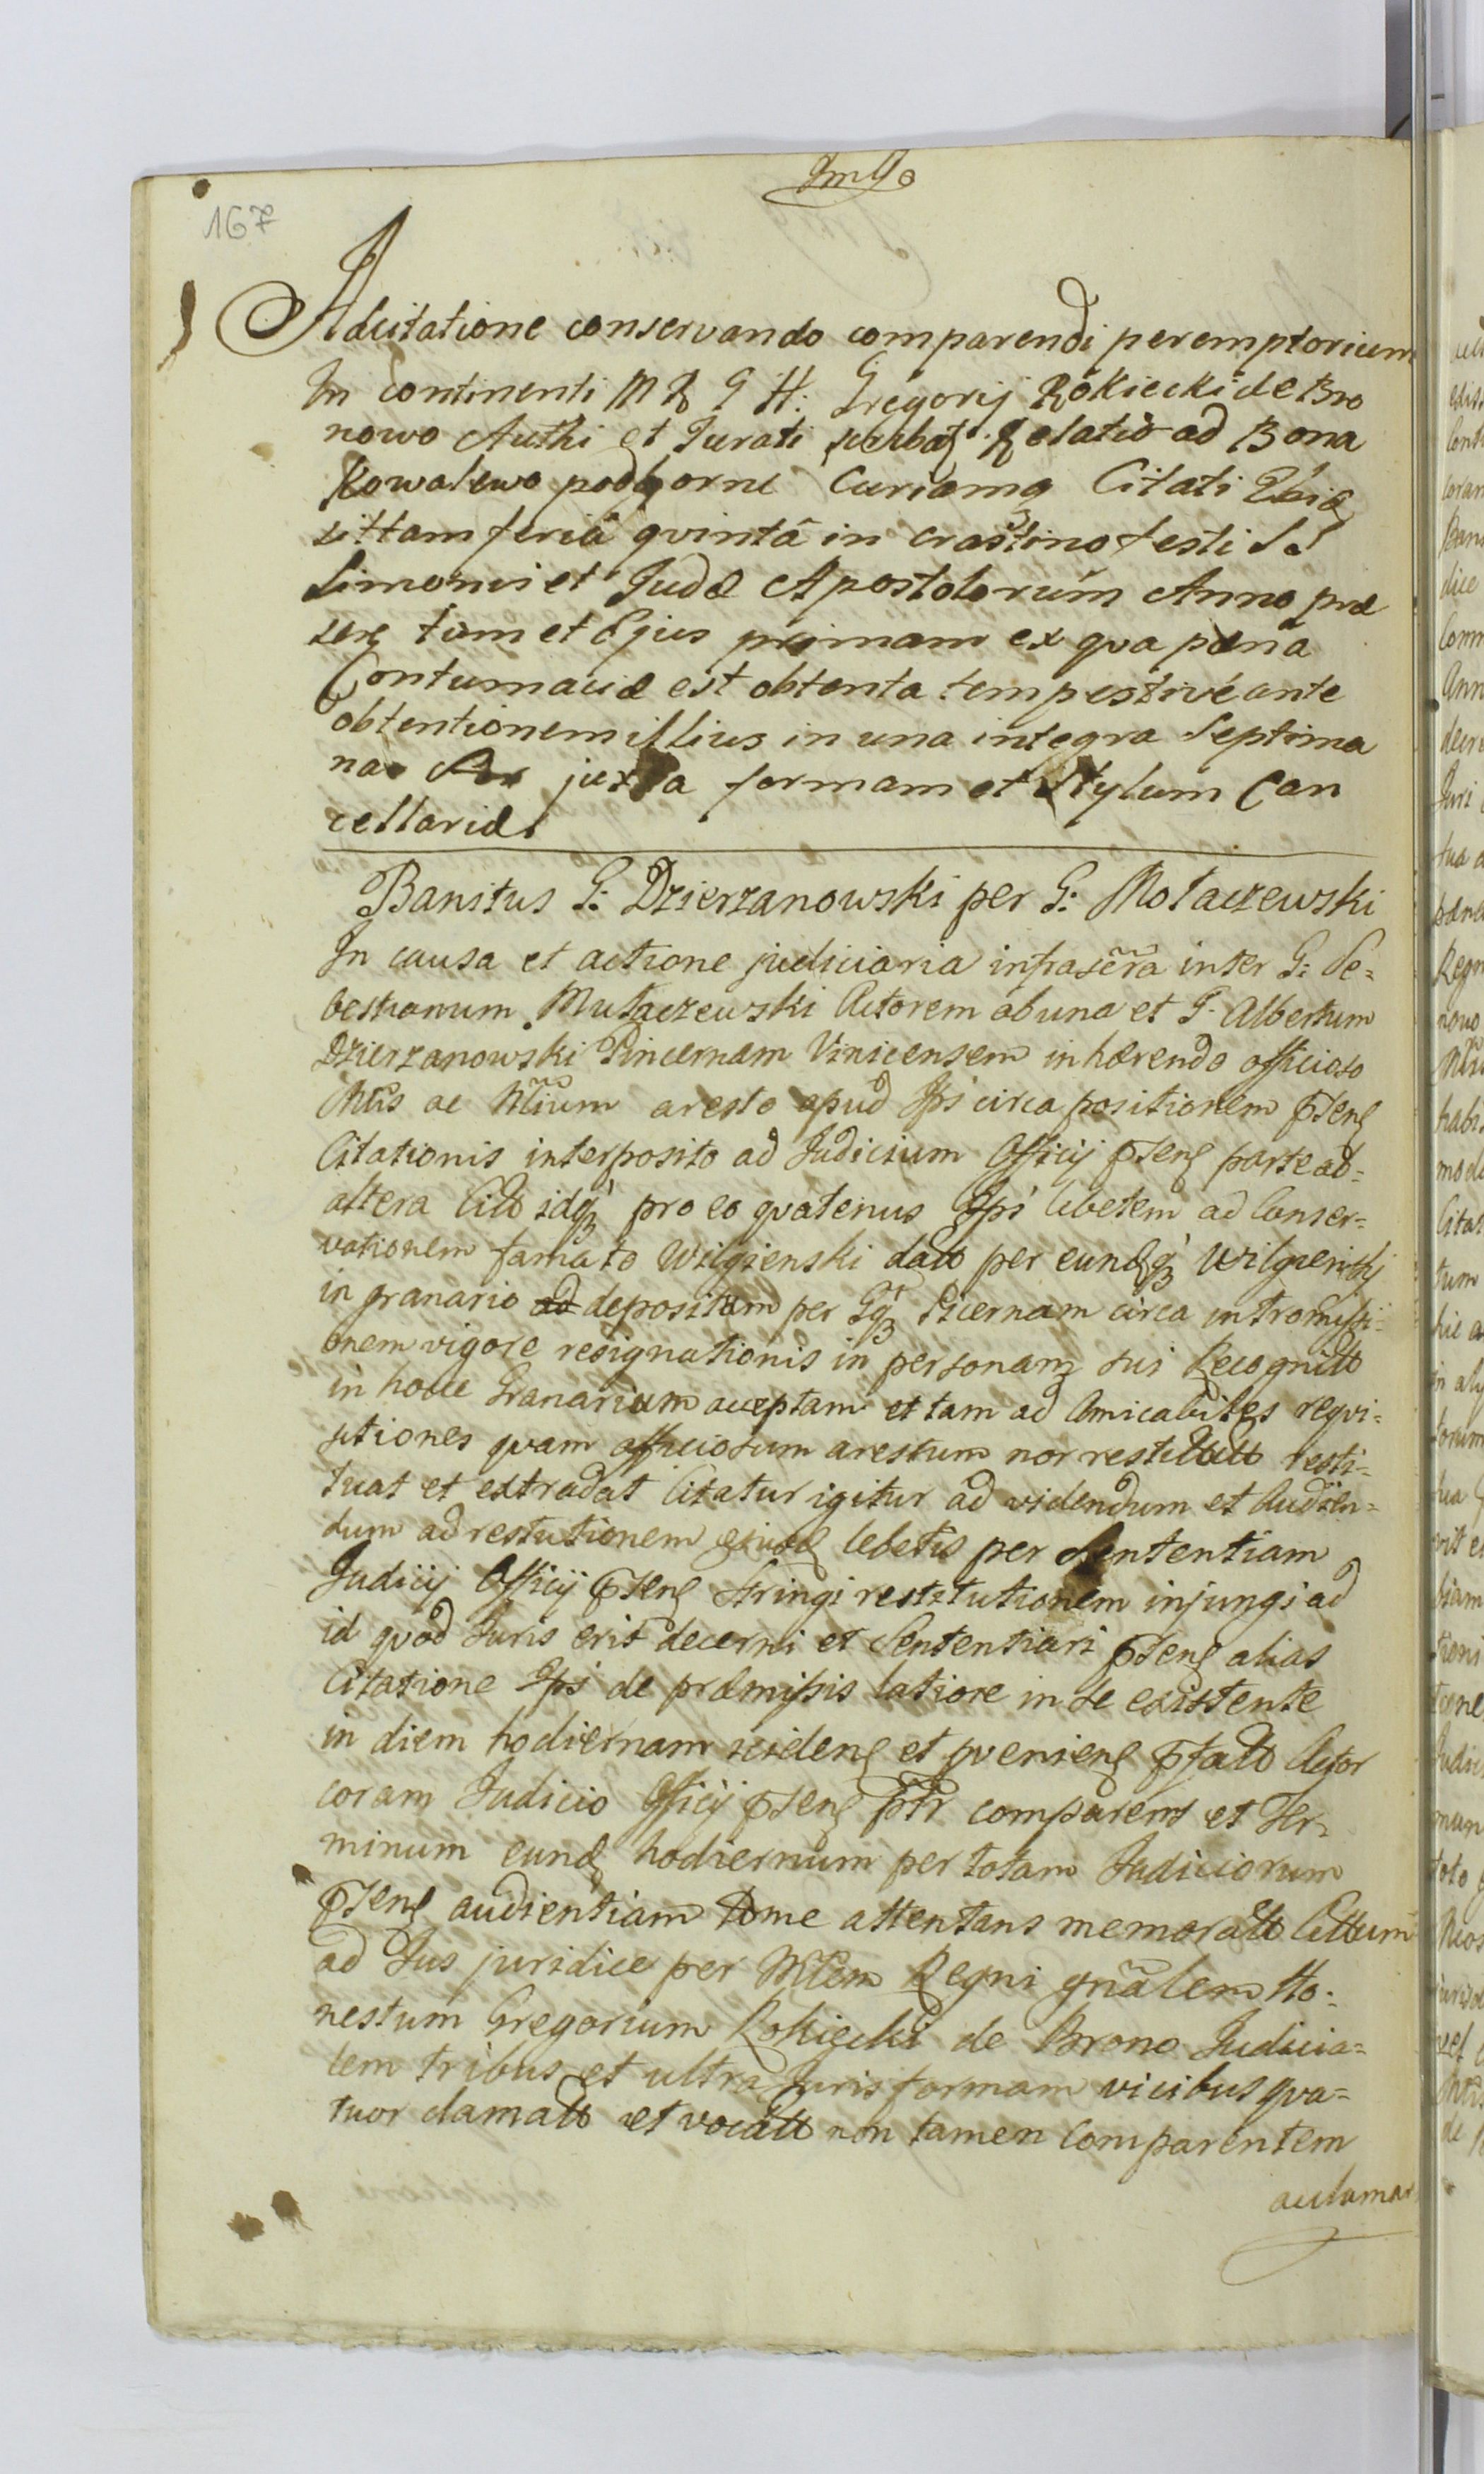 167
Adcitatione conservando comparendi peremptorium
In continenti M R G H: Gregorij Rokiecki de Bro
nowo Authi et Jurati Relatio ad Bona
Kowalewo podborne Curiamq Citati Ibiq
sittam feriâ qvintâ in crastino festi SS
Simonis et Judæ Apostolorum Anno præ
tum et Ejus primam ex qva pæna
Contumaciæ est obtenta tempestivé ante
obtentionem illius in una integra Septima
na juxta formam et Stylum Can
cellariæ.
Banitus G: Dzierzanowski per G: Motaczewski
In causa et actione judiciaria infrascr̃a inter G: Se=
bestianum Mutaczewski Actorem ab una et G. Albertum
Dzierzanowski Pincernam Vinicensem inhærendo officioso
ac aresto apud Ipś circa positionem pteng
Citationis interposito ad Judicium Officij pteng parte ab=
altera Citt idqʒ pro eo qvatenus Ipś lebetem ad Conser=
vationem famato Wilgienski datt per eundqʒ Wilgienski
in granario ad depositum per Gqʒ Picernam circa intromissi=
onem vigore resignationis in personam sui Recognitt
in hocce Granarium acceptam et tam ad Amicabiles reqvi=
sitiones qvam officiosum arestum non restituitt resti=
tuat et extradat Citatur igitur ad videndum et Audien=
dum ad restutionem ejusd lebetis per Sententiam
Judicij Officij pteng stringi restitutionem injungi ad
id qvod Juris erit decerni et Sententiari pteng alias
Citatione Ipś de præmissis latiore in se existente
in diem hodiernam cideng et pveniens pfatt Actor
coram Judicio Officij pteng ptr comparens et Ter=
minum eund hodiernum per totam Judiciorum
pteng audientiam attentans memoratt Cittum
ad Jus juridice per Mtem Regni gñalem Ho=
nestum Gregorium Rokiecki de Brono Judicia=
lem tribus et ultra Juris formam vicibus qva=
tuor clamatt et vocatt non tamen Comparentem
acclamar